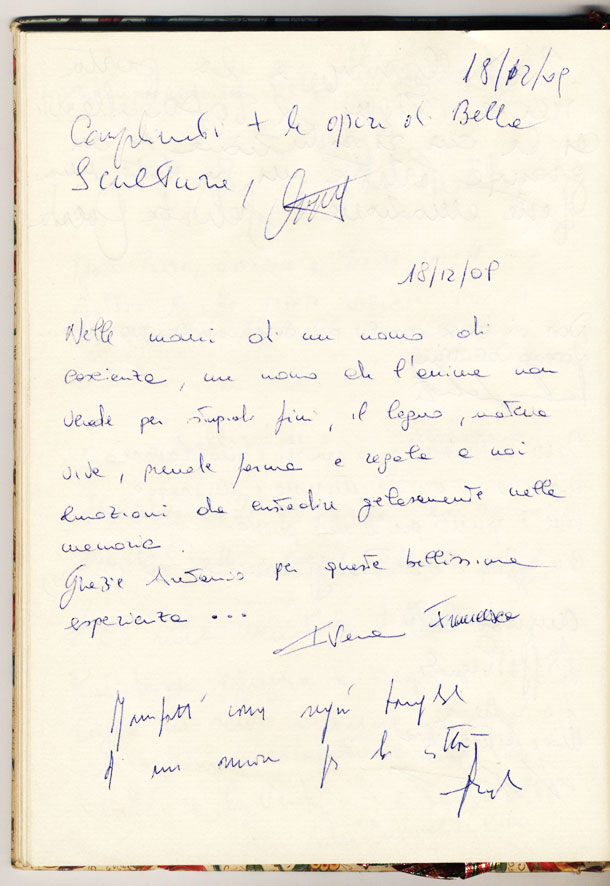 18/12/09
Complimenti + le opere di Bella
Sculture,
18/12/09
Nelle mani di un uomo di
coscienza, un uomo che l'anima non
vende per stupidi fini, il legno, materia
viva, prende forma e regala a noi
emozioni da custodire gelosamente nella
memoria.
Grazie Antonio per questa bellissima
esperienza ...
Ivana Francesca
Manufatti come segni tangibili
di un amore per la città